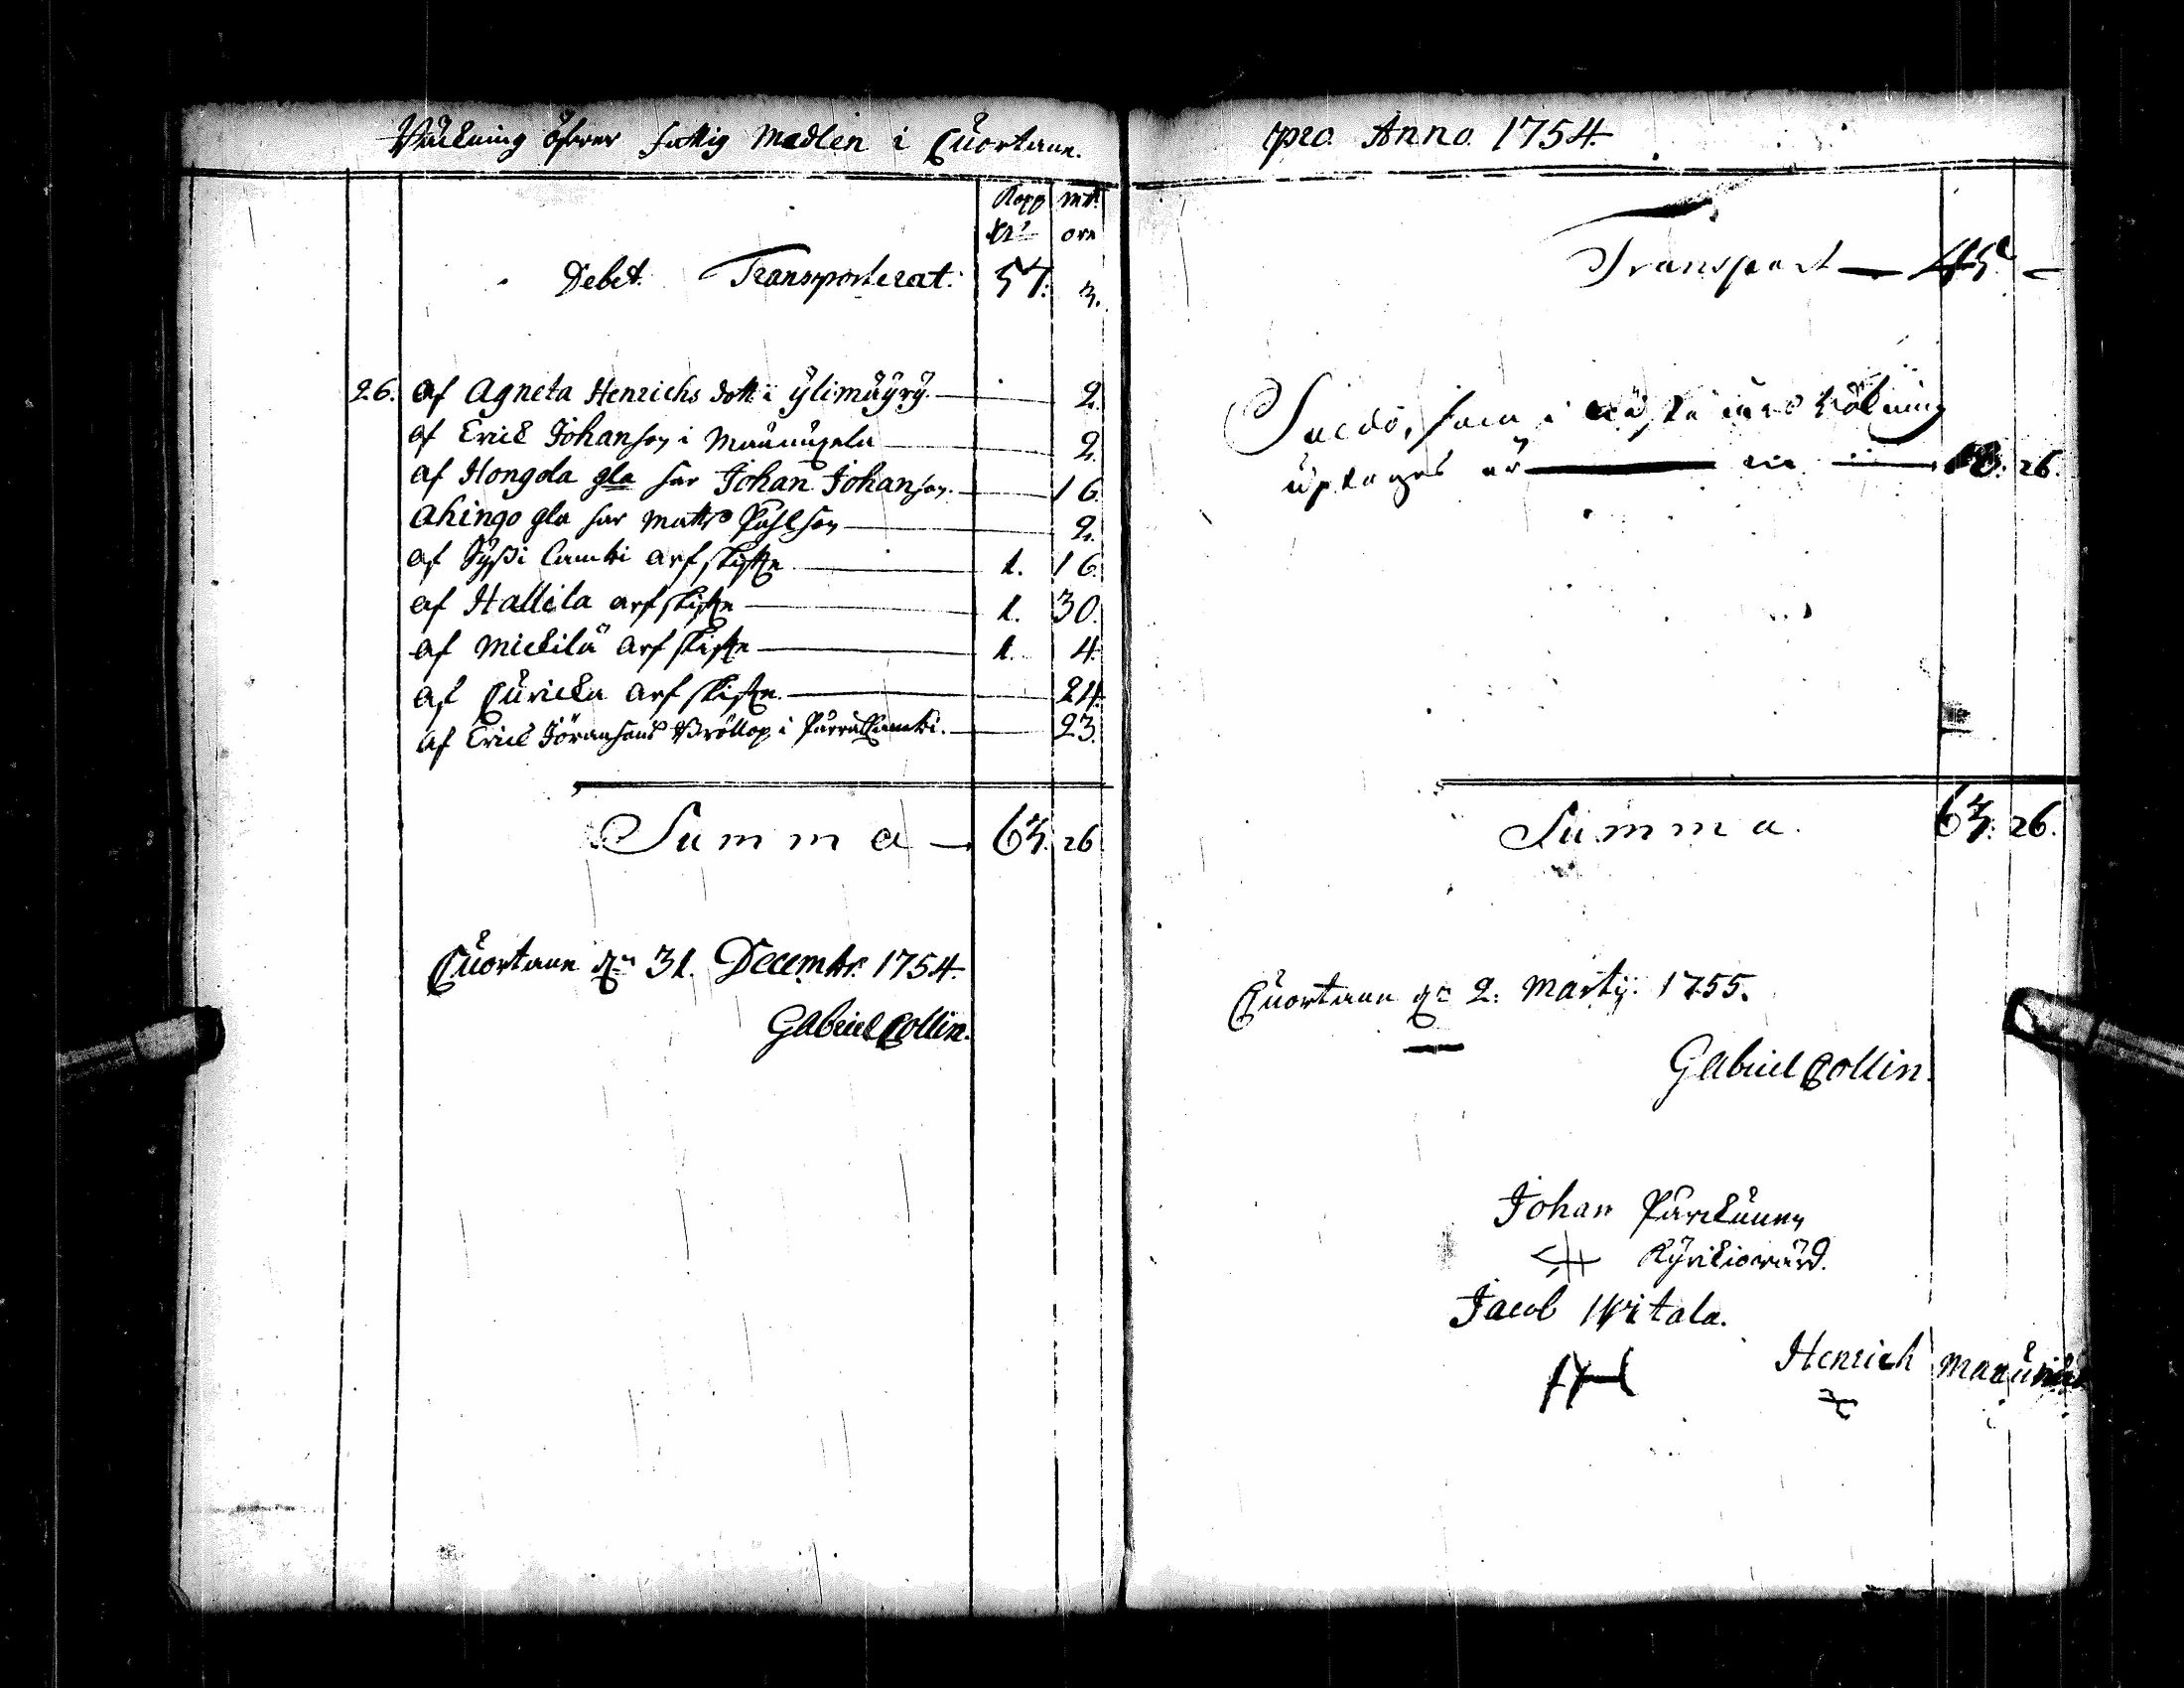 Räckning öfwer fattig Medlen i Cuortane.
Kopp mt
dlr ore
Debet. Transporterat. 57: 3.
26. af Agneta Henrichs dott. i ÿlimäÿrÿ. 2.
af Erick Johanson i Mannuxela 2.
af Hongola gla far Johan Johanson. 16
Ahingo gla far Matts Påhlson 2.
af Sÿssi Lamki arfskifte 1. 16.
af Hallila arfskifte 1. 30.
af Mickilä arfskifte 1. 4.
af Curicka arfskifte. 24.
af Erics Jöransons Bröllop i 23.
Summa 63. 26
Cuortane dn 31. Decembr. 1754.
Gabriel Collin.
pro Anno 1754.
Transport 45 —
Saldo, som i nästa års Räkning
uptages är 18: 26.
Summa. 63: 26.
Cuortane dn 2. Martij. 1755.
Gabriel Collin.
Johan
Kÿrkiowärd.
Jacob Witala.
Henrich